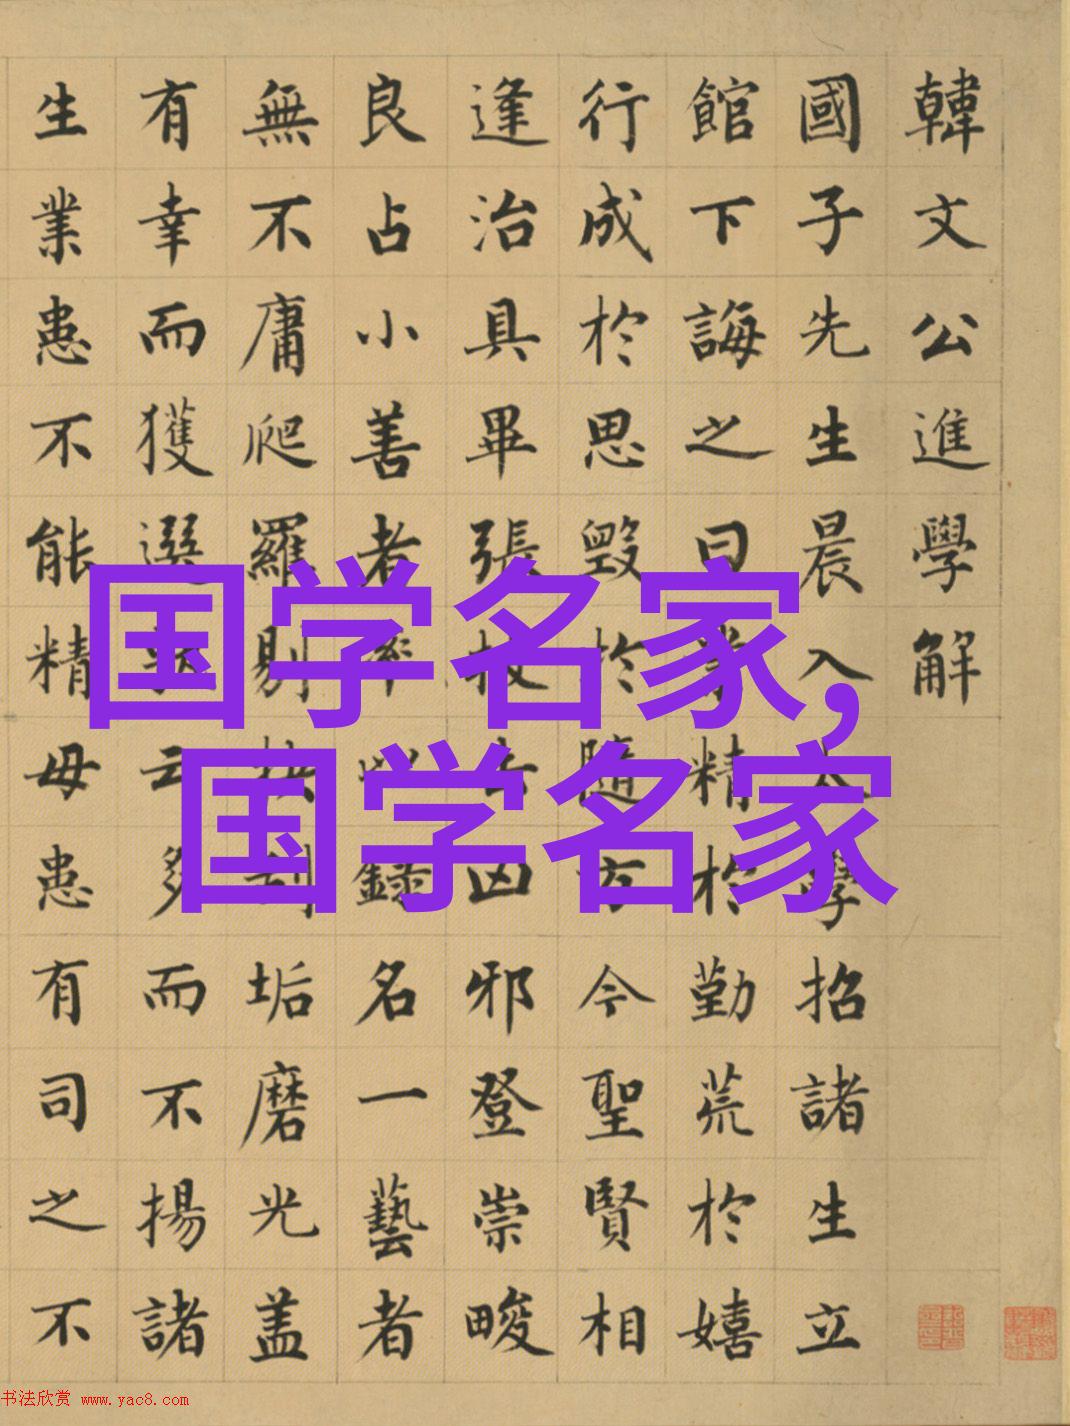 韓文公進學解
國子先生晨入太學招諸生立
館下誨之曰業精於勤荒於嬉
行成於思毀於隨方今聖賢相
逢治具畢張拔去凶邪登崇畯
良占小善者率以錄名一藝者
無不庸爬羅剔抉刮垢磨光盖
有幸而獲選孰云多而不揚諸
生業患不能精母患有司之不
国学名家，
国学名家
书法欣赏 www.yac8.com